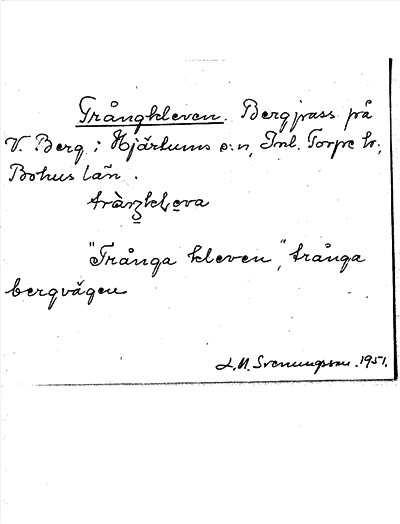 Trångkleven. Bergpass på
V. Berg i Hjärtums s:n, Inl. Torpe hr.,
Bohus län.
"Trånga kleven", trånga
bergvägen
L.M. Svenungsson. 1951.